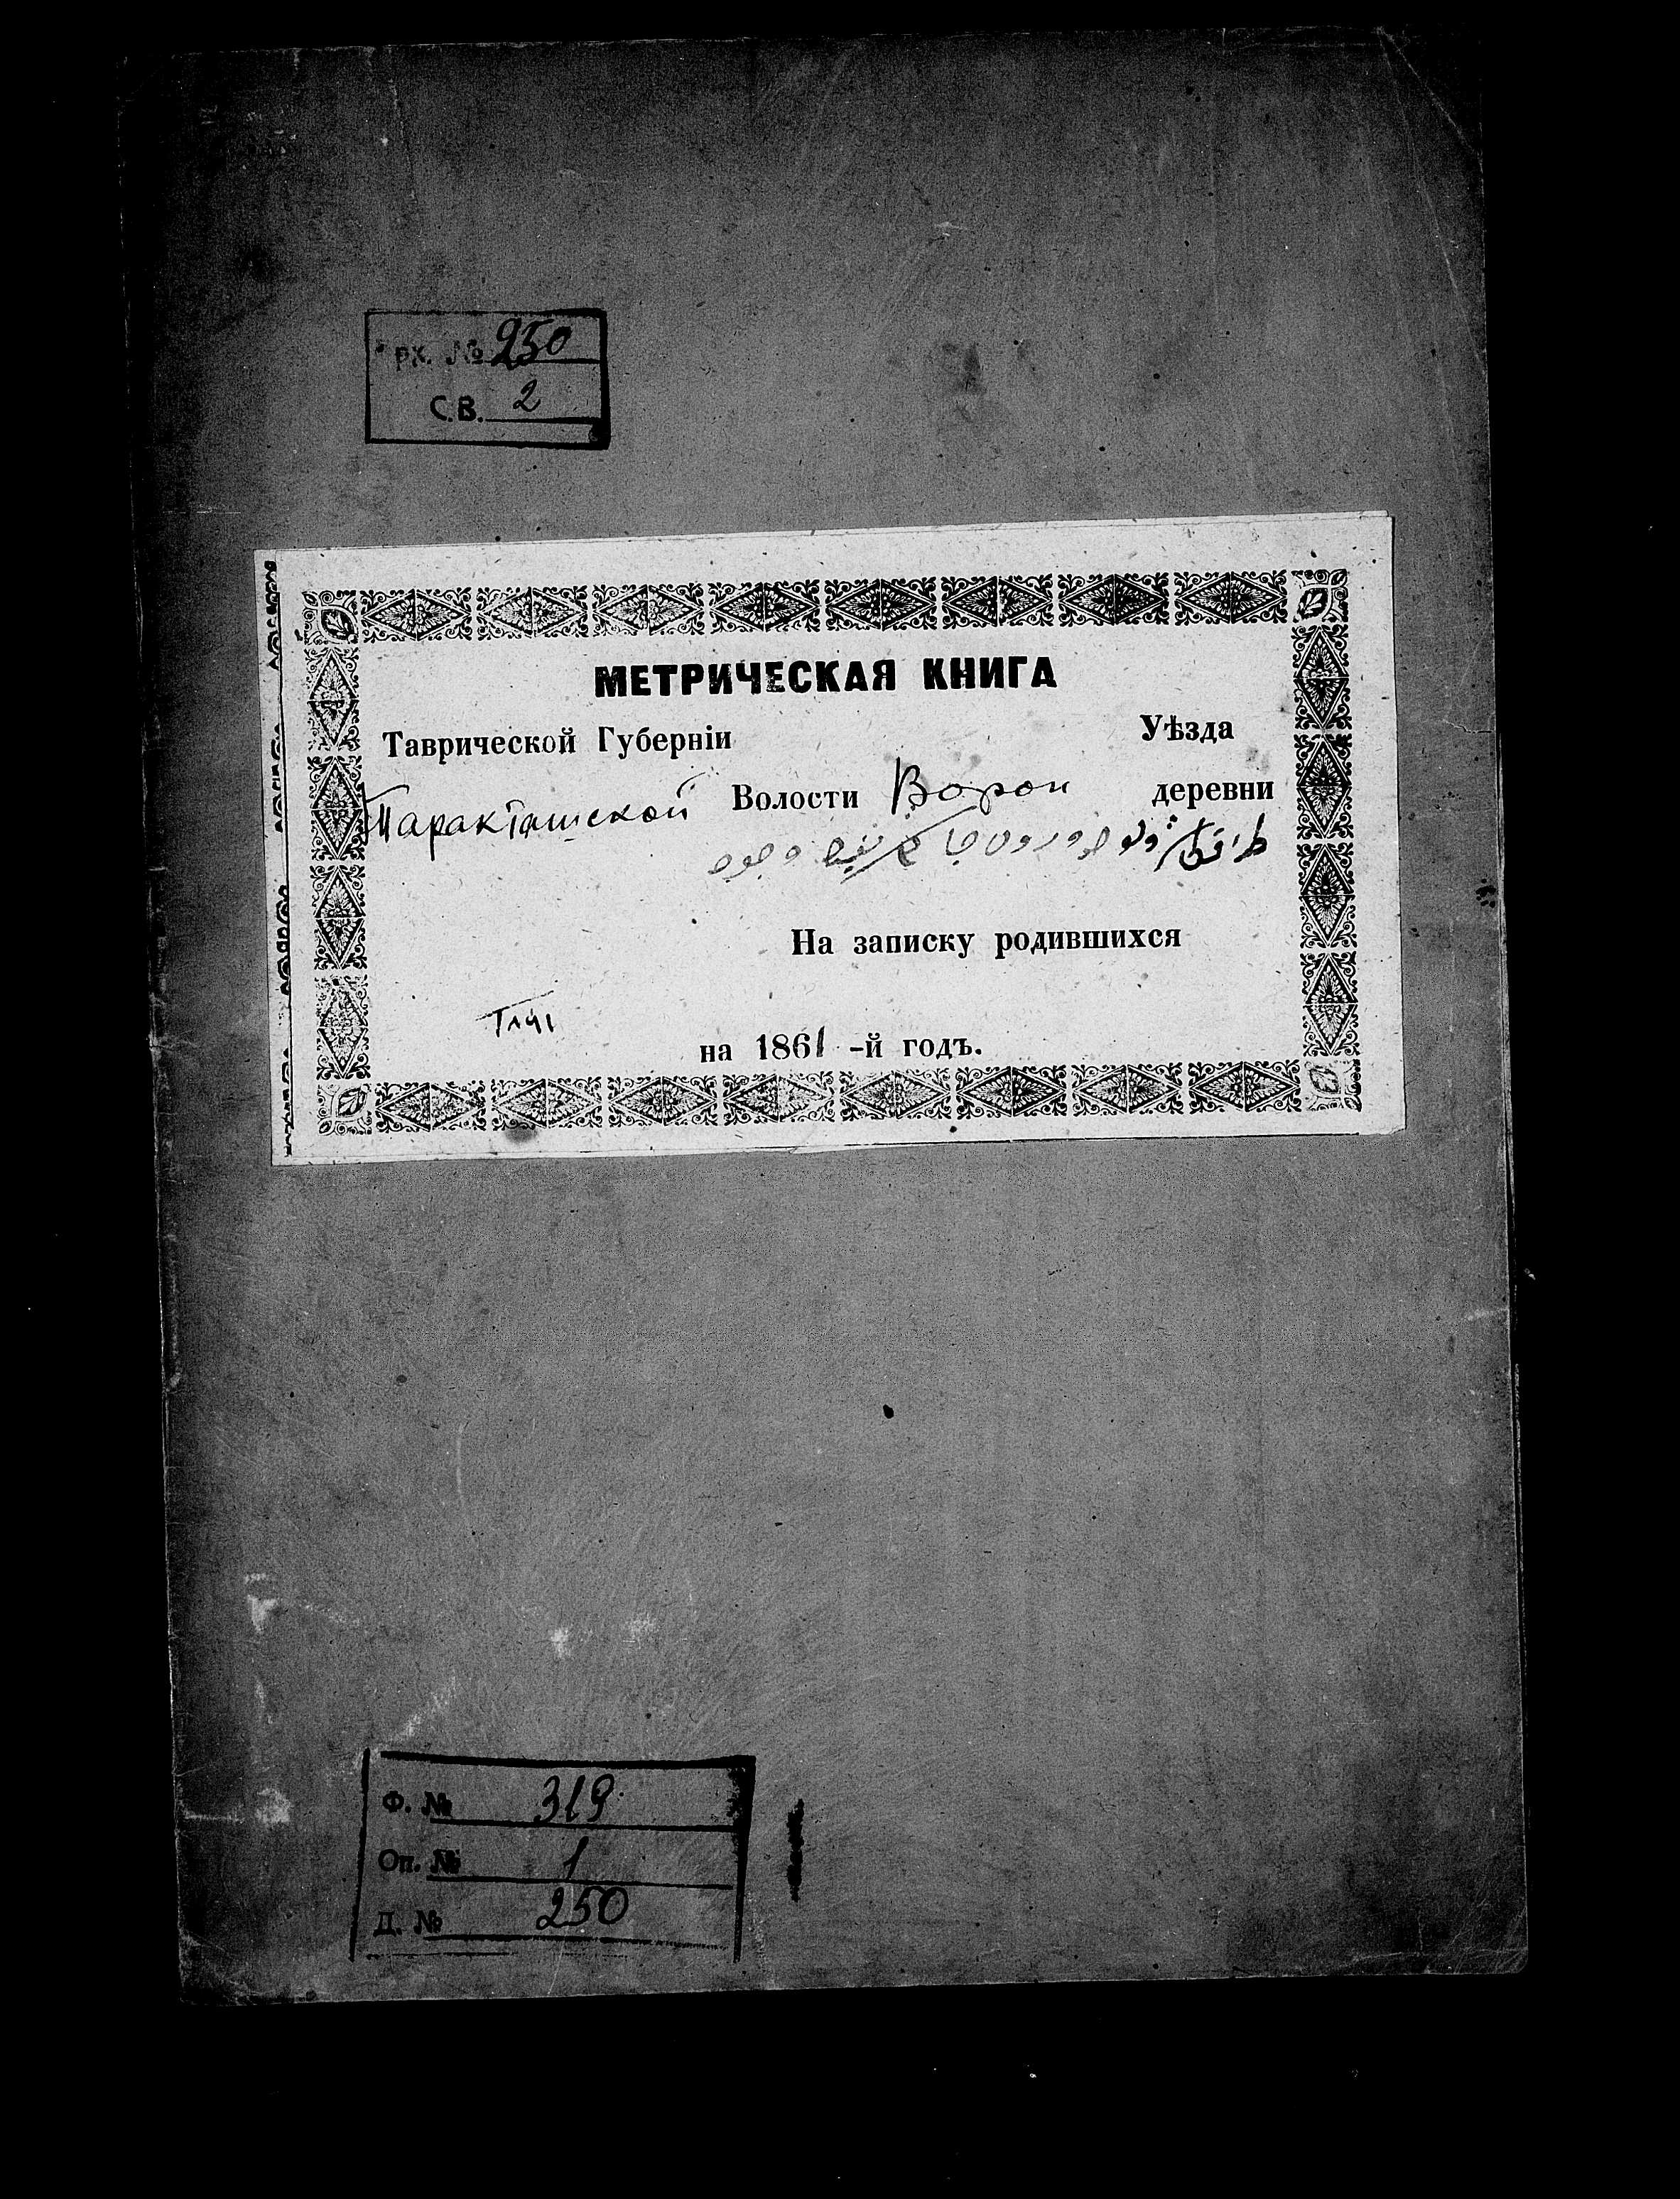 рх. № 250
С.В. 2
МЕТРИЧЕСКАЯ КНИГА
Таврической Губерніи Уѣзда
Таракташской Волости Ворон деревни
На записку родившихся
١٨٦١
на 1861-й годъ.
Ф. № 319
Оп. № 1
Д. № 250